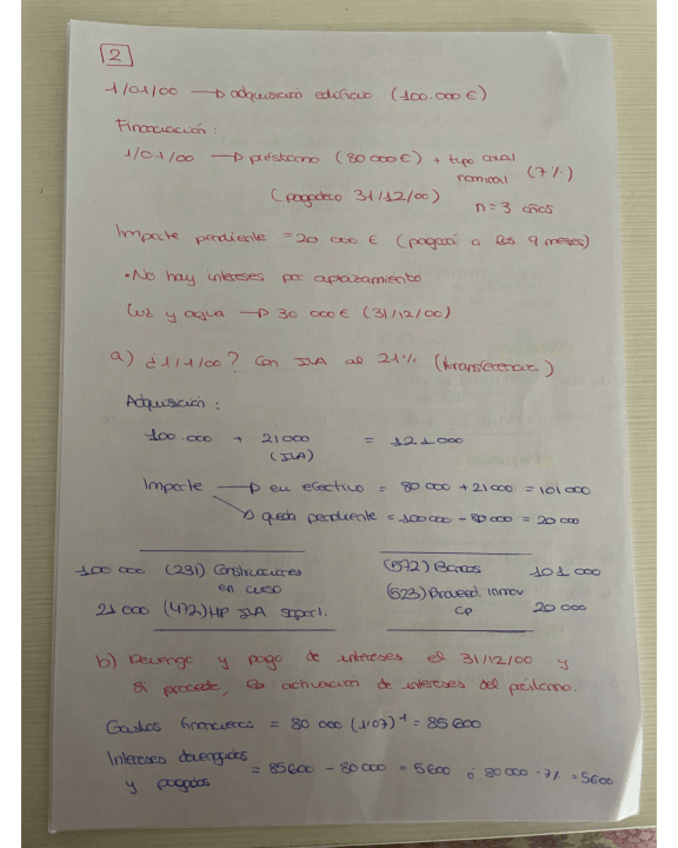 2
1/01/00 → adquisición edificio (100.000 €)
Financiación:
1/01/00 → préstamo (80 000 €) + tipo anual
nominal (7%)
(pagadero 31/12/00)
n = 3 años
Importe pendiente = 20 000 € (pagará a los 9 meses)
• No hay intereses por aplazamiento
Luz y agua → 30 000 € (31/12/00)
a) ¿1/1/00? Con IVA al 21% (transferencia)
Adquisición:
100.000 + 21 000 = 121 000
(IVA)
Importe → en efectivo = 80 000 + 21 000 = 101 000
→ queda pendiente = 100 000 - 80 000 = 20 000
100 000 (231) Construcciones en curso
(572) Bancos 101 000
21 000 (472) HP IVA soport.
(523) Proveed. inmov CP 20 000
b) Devengo y pago de intereses el 31/12/00 y
si procede, la activación de intereses del préstamo.
Gastos financieros = 80 000 (1'07)¹ = 85 600
Intereses devengados
y pagados = 85 600 - 80 000 = 5600 ó 80 000 · 7% = 5600